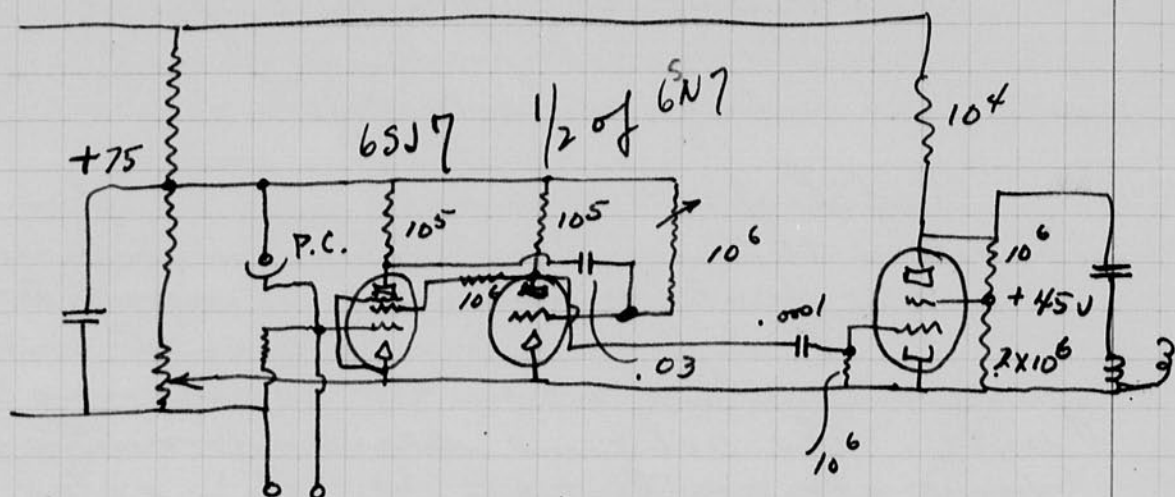 6SJ7
1/2 of 6SN7
10⁴
+75
P.C.
10⁵
10⁵
10⁶
10⁶
+45V
.0001
.03
.2x10⁶
10⁶